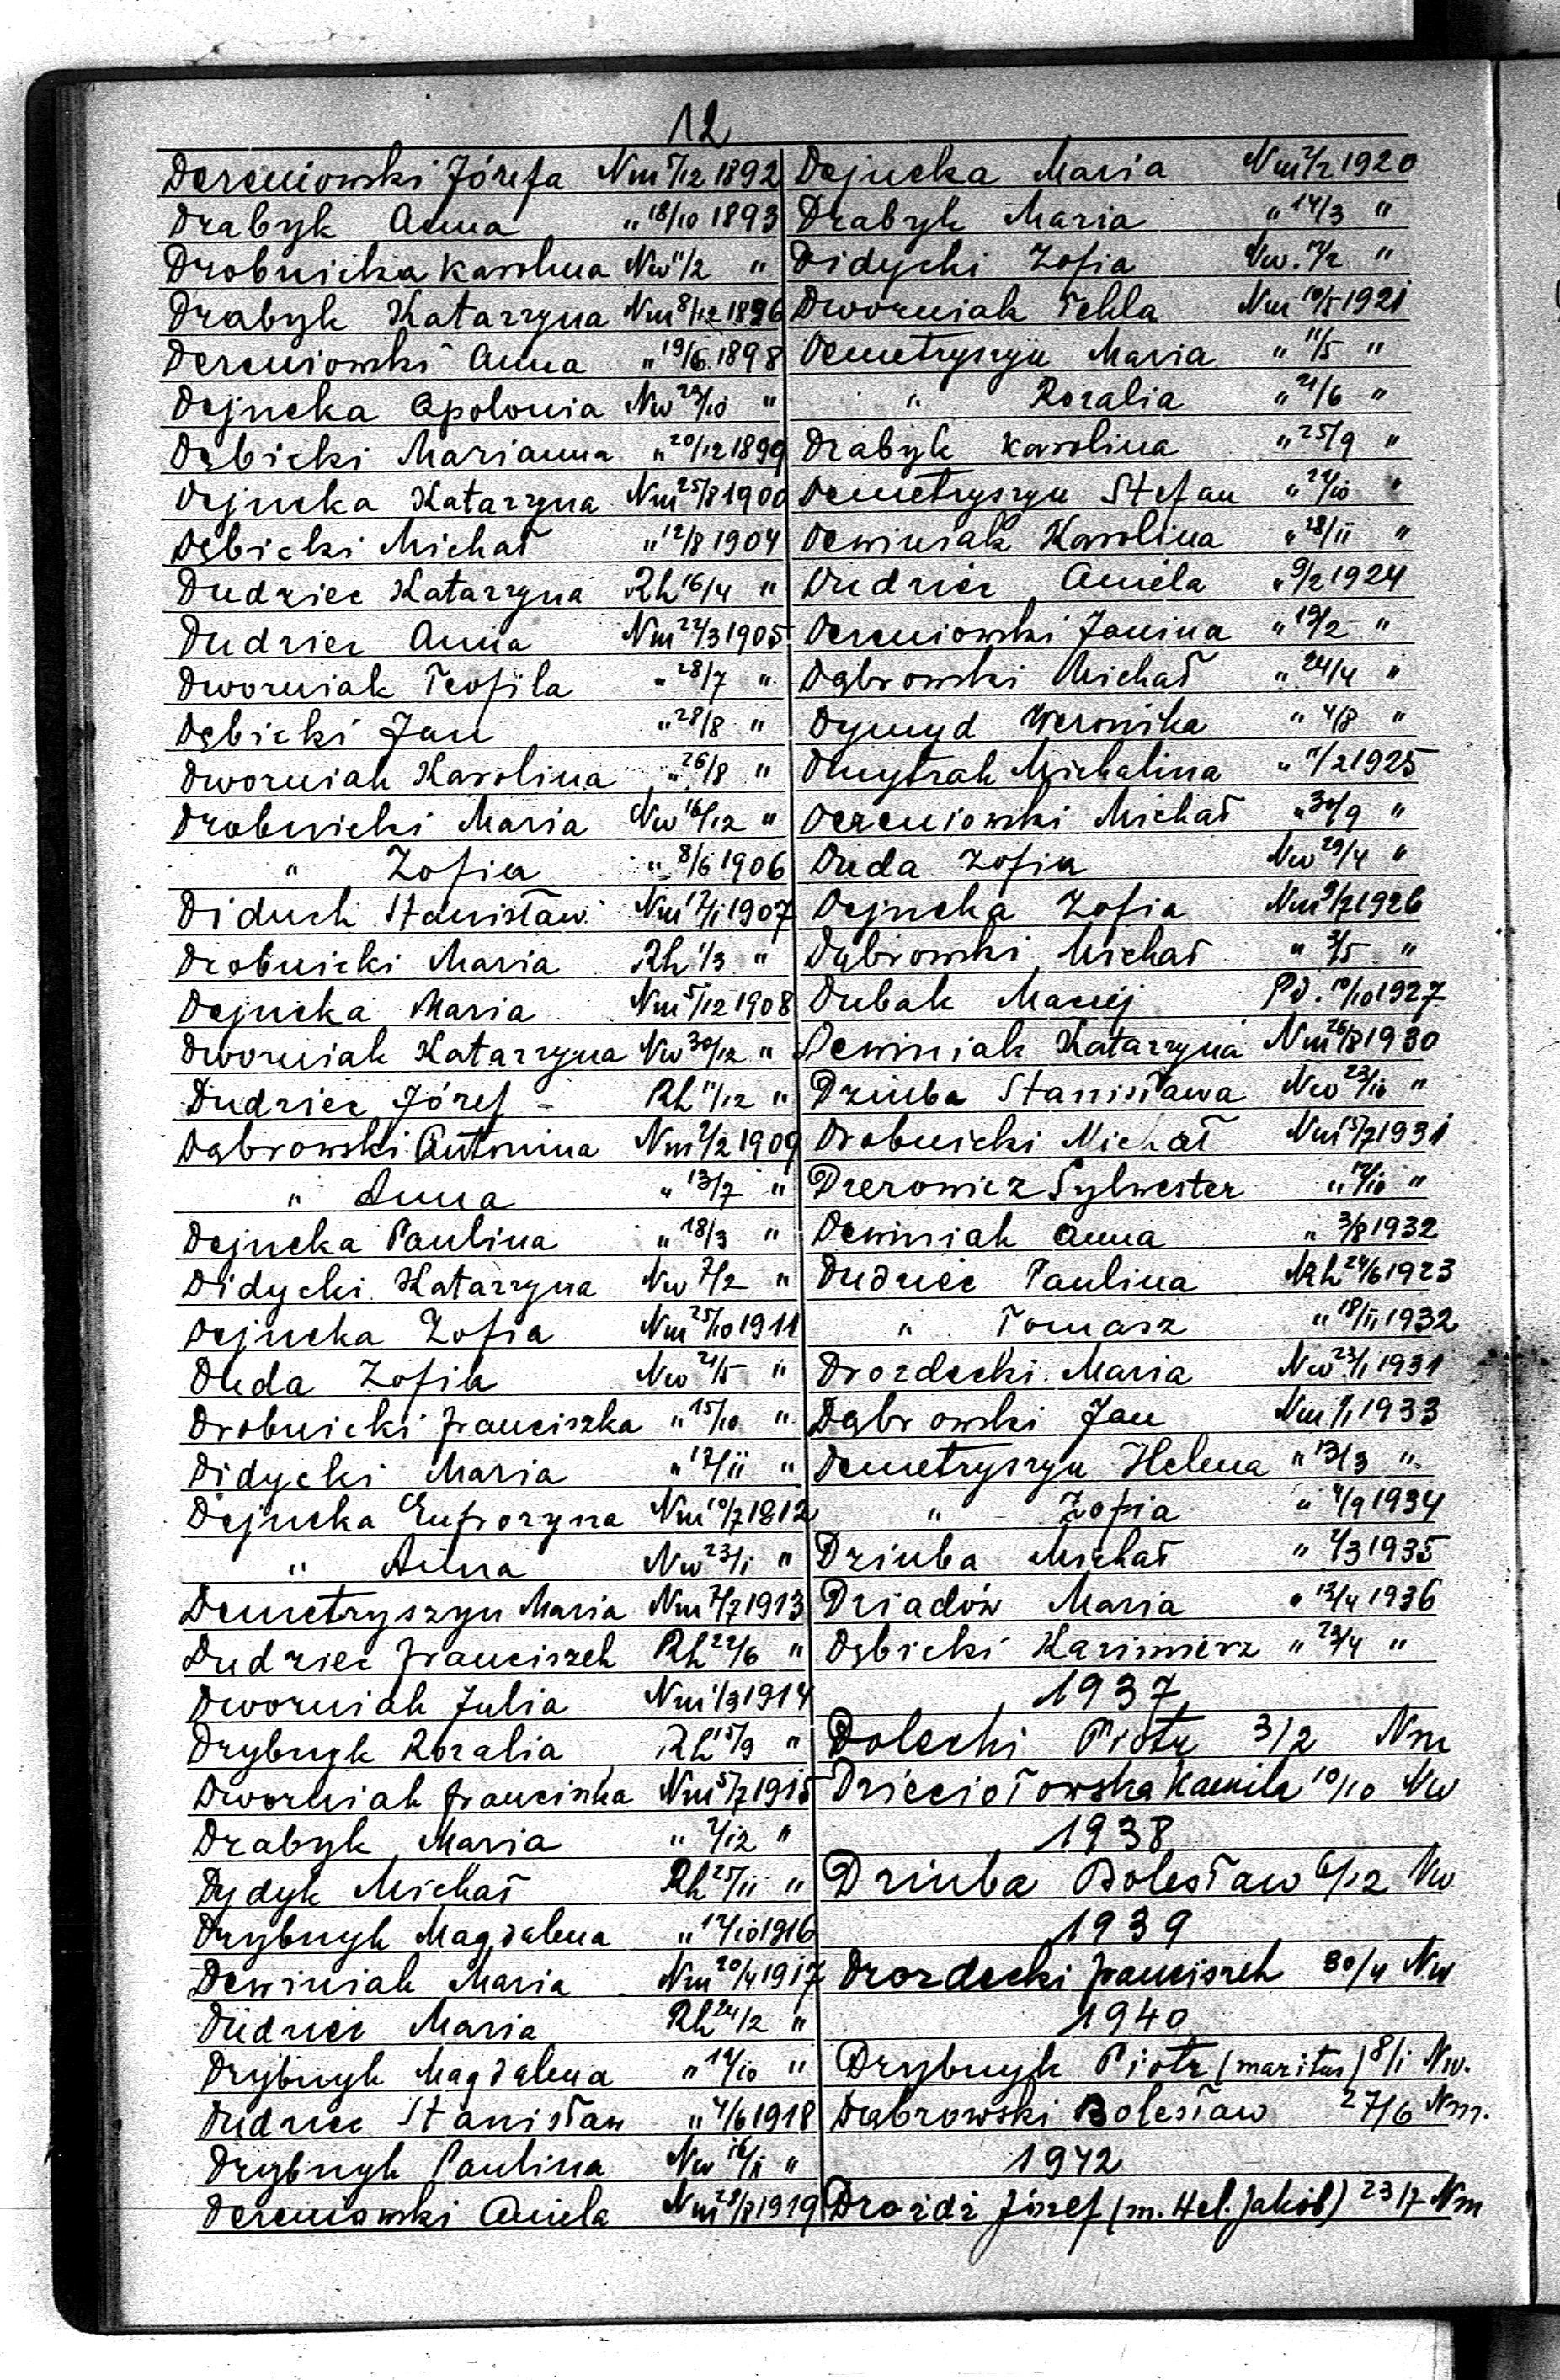 12
Dereniowski Józefa Nm 5/12 1892
Drabyk Anna " 18/10 1893
Drobnicka Karolina Nw 11/2 "
Drabyk Katarzyna Nm 8/12 1896
Dereniowski Anna " 19/6 1898
Dejneka Apolonia Nw 29/10 "
Dębicki Marianna " 20/12 1899
Dejneka Katarzyna Nm 25/8 1900
Dębicki Michał " 12/8 1904
Dudziec Katarzyna Rh 16/4 "
Dudziec Anna Nm 22/3 1905
Dworniak Teofila " 28/7 "
Dębicki Jan " 28/8 "
Dworniak Karolina " 26/8 "
Drobnicki Maria Nw 16/12 "
" Zofia " 8/6 1906
Diduch Stanisław Nm 17/1 1907
Drobnicki Maria Rh 1/3 "
Dejneka Maria Nm 5/12 1908
Dworniak Katarzyna Nw 30/12 "
Dudziec Józef - Rh 11/12 "
Dąbrowski Antonina Nm 7/2 1909
" Anna " 13/7 "
Dejneka Paulina " 18/3 "
Didycki Katarzyna Nw 7/2 "
Dejneka Zofia Nm 25/10 1911
Duda Zofia Nw 21/5 "
Drobnicki Franciszka " 15/10 "
Didycki Maria " 17/11 "
Dejneka Eufrozyna Nm 10/7 1812
" Anna Nw 23/1 "
Demetryszyn Maria Nm 7/7 1913
Dudziec Franciszek Rh 22/6 "
Dworniak Julia Nm 1/3 1914
Drybnyk Rozalia Rh 15/9 "
Dworniak Franciszka Nm 5/7 1915
Drabyk Maria " 7/12 "
Dydyk Michał Rh 25/11 "
Drybnyk Magdalena " 17/10 1916
Dewiniak Maria Nm 20/4 1917
Dudziec Maria Rh 24/2 "
Drybnyk Magdalena " 19/10 "
Dudziec Stanisław " 4/6 1918
Drybnyk Paulina Nw 16/1 "
Dereniowski Aniela Nm 28/8 1919
Dejneka Maria Nm 7/2 1920
Drabyk Maria " 14/3 "
Didycki Zofia Nw. 17/2 "
Dworniak Tekla Nm 10/5 1921
Demetryszyn Maria " 11/5 "
" Rozalia " 21/6 "
Drabyk Karolina " 25/9 "
Demetryszyn Stefan " 24/10 "
Dewiniak Karolina " 28/11 "
Dudziec Aniela " 9/2 1924
Dereniowski Janina " 19/2 "
Dąbrowski Michał " 24/4 "
Dymyd Weronika " 4/8 "
Dmytrak Michalina " 11/2 1925
Dereniowski Michał " 30/9 "
Duda Zofia Nw 29/4 "
Dejneka Zofia Nm 9/7 1926
Dąbrowski Michał " 3/5 "
Dubak Maciej Pd. 10/10 1927
Dewiniak Katarzyna Nm 26/8 1930
Dziuba Stanisława Nw 23/10 "
Drobnicki Michał Nm 15/7 1931
Dzerowicz Sylwester " 17/10 "
Dewiniak Anna " 3/8 1932
Dudziec Paulina Rh 24/6 1923
" Tomasz " 18/11 1932
Drozdecki Maria Nw 23/1 1931
Dąbrowski Jan Nm 1/1 1933
Demetryszyn Helena " 13/3 "
" Zofia " 4/9 1934
Dziuba Michał " 7/3 1935
Dziadów Maria " 12/4 1936
Dębicki Kazimierz " 23/4 "
1937
Dolecki Piotr 3/2 Nm
Dzięciołowska Kamila 10/10 Nw
1938
Dziuba Bolesław 6/12 Nw
1939
Drozdecki Franciszek 30/4 Nw
1940
Drybnyk Piotr (maritus) 8/1 Nw.
Dąbrowski Bolesław 27/6 Nm.
1942
Drożdż Józef (m. Hel. Jakób) 23/7 Nm